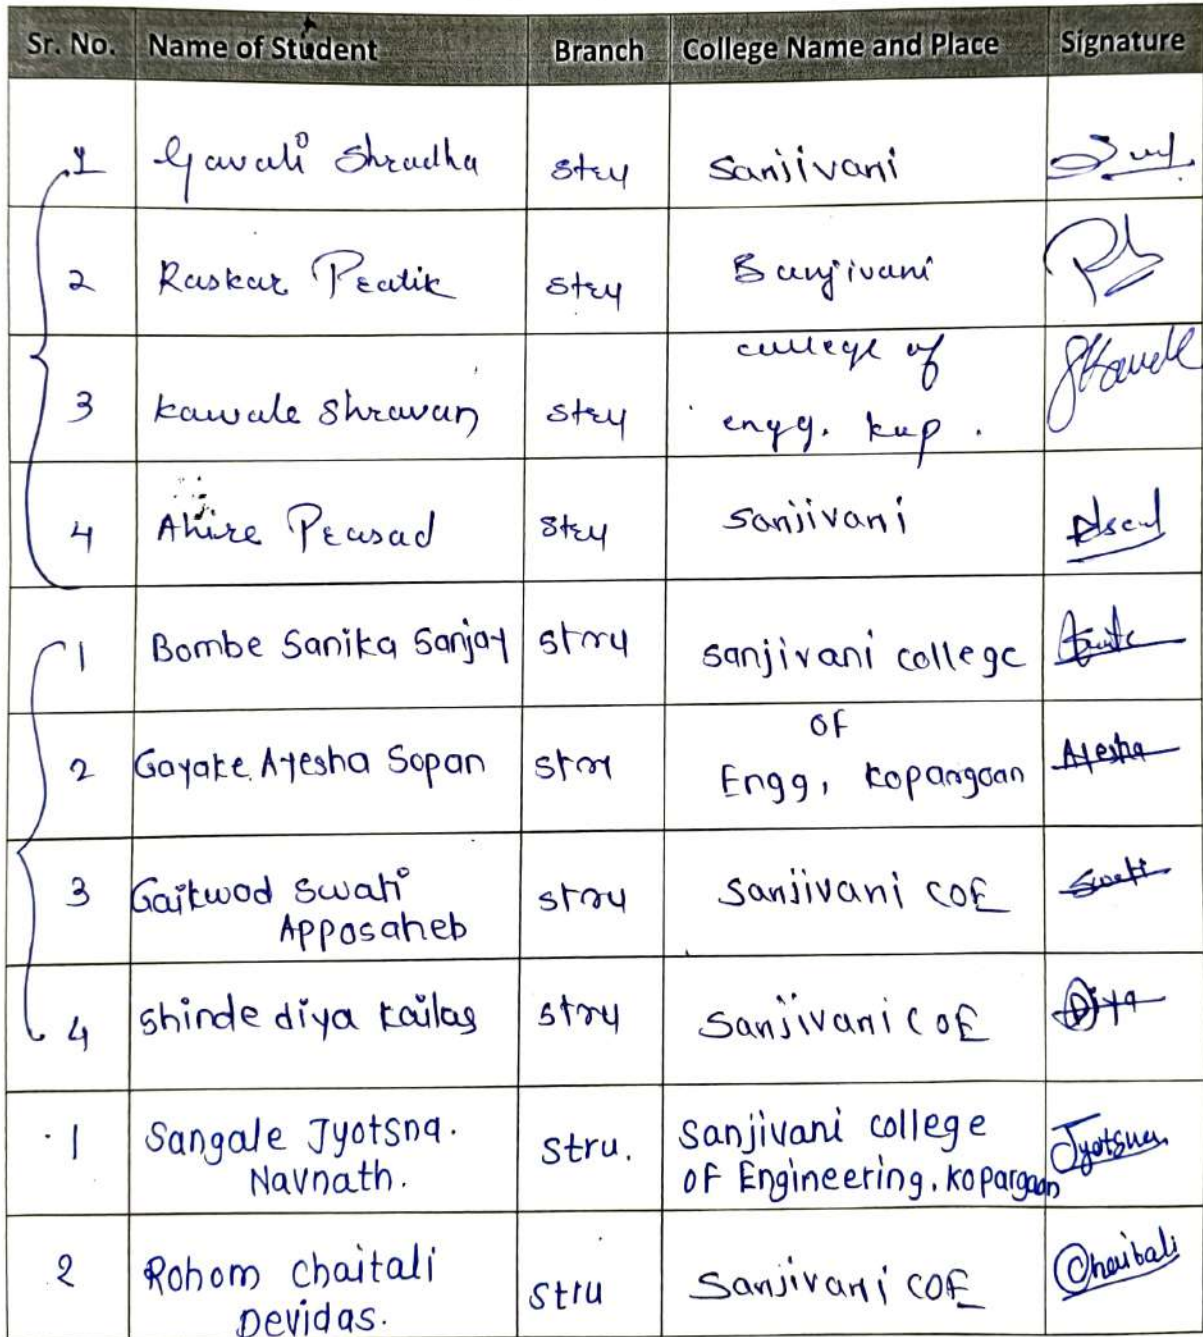 Sr. No. Name of Student Branch College Name and Place Signature
1 Gavali Shradha stru Sanjivani
2 Raskar Pratik stru Sanjivani
3 Kawale Shravan stru college of
engg. kop.
4 Ahire Prasad stru Sanjivani
1 Bombe Sanika Sanjay stru sanjivani college
2 Gayake Ayesha Sopan stru OF
Engg, kopargaon Ayesha
3 Gaikwad Swati
Appasaheb stru Sanjivani COE Swati
4 Shinde diya kailas stru Sanjivani COE Diya
1 Sangale Jyotsna.
Navnath. stru. Sanjivani college
OF Engineering, kopargaon Jyotsna
2 Rohom Chaitali
Devidas. stru Sanjivani COE Chaitali